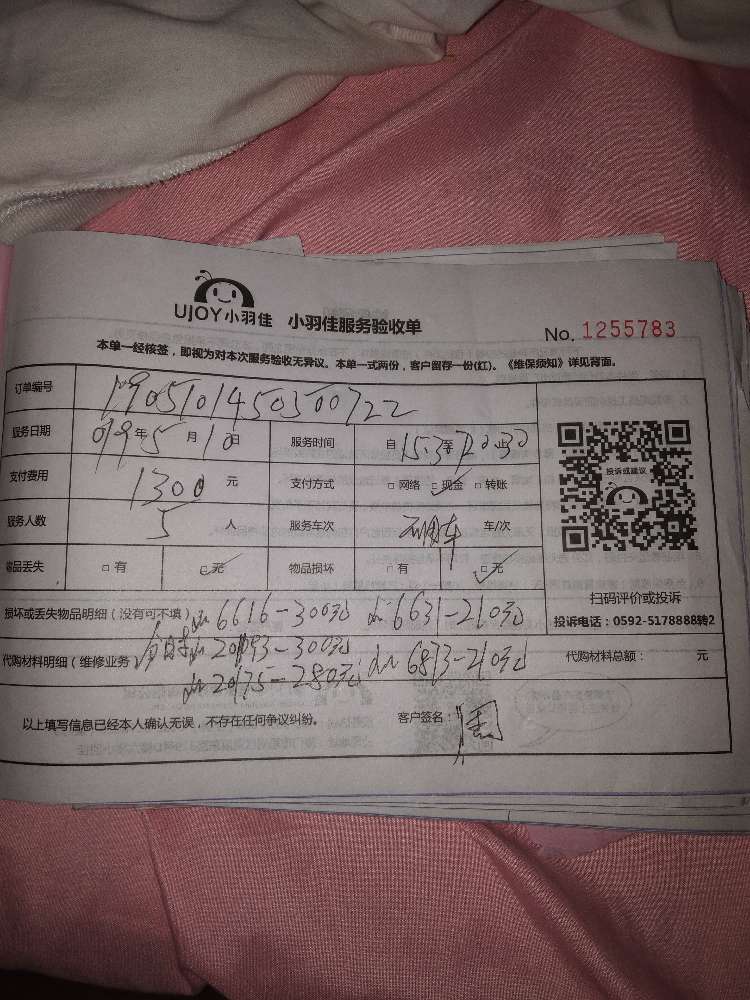 UJOY小羽佳 小羽佳服务验收单 No. 1255783
本单一经核签，即视为对本次服务验收无异议。本单一式两份，客户留存一份(红)。《维保须知》详见背面。
订单编号 19051014503500722
服务日期 019年5月10日 服务时间 自15:30至20:30止
支付费用 1300元 支付方式 □网络 □现金 □转账
服务人数 5人 服务车次 车/次
物品丢失 □有 □无 物品损坏 □有 □无
投诉或建议
扫码评价或投诉
投诉电话：0592-5178888转2
损坏或丢失物品明细（没有可不填） 6616-300元 6631-210元
代购材料明细（维修业务） 20193-300元 代购材料总额： 元
20175-280元 6873-210元
以上填写信息已经本人确认无误，不存在任何争议纠纷。 客户签名：